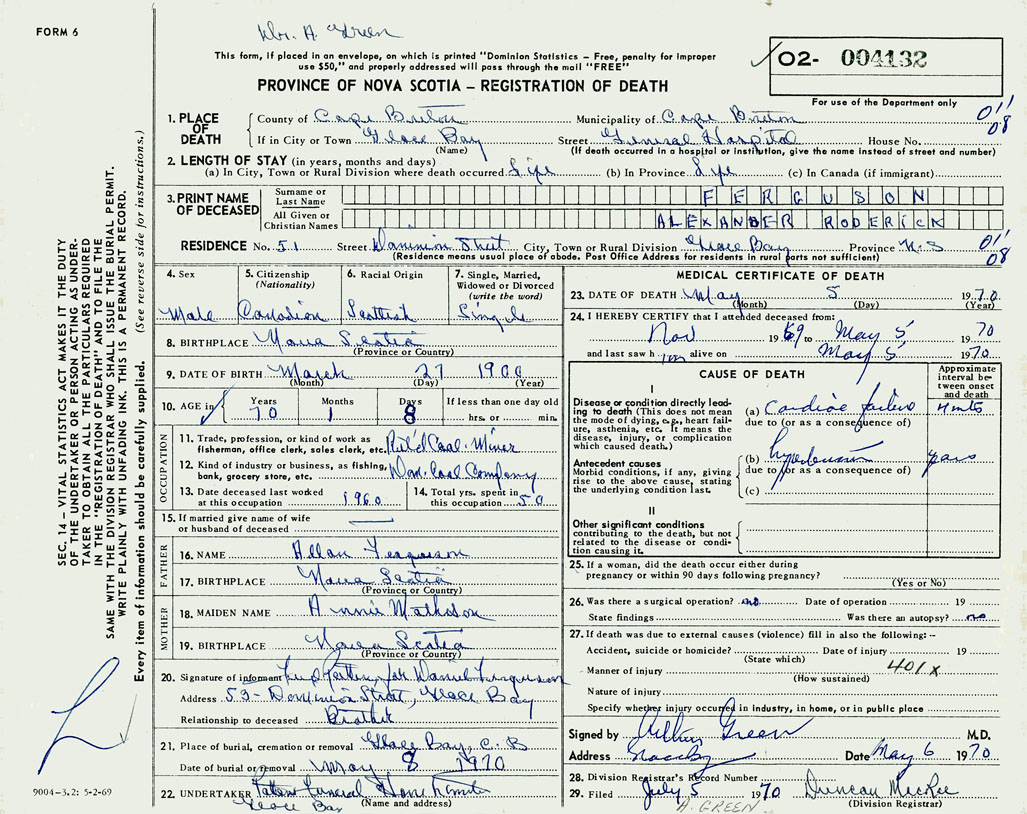 FORM 6
Dr. A. Green
This form, if placed in an envelope, on which is printed "Dominion Statistics – Free, penalty for improper
use $50," and properly addressed will pass through the mail "FREE"
02- 004132
For use of the Department only
PROVINCE OF NOVA SCOTIA – REGISTRATION OF DEATH
1. PLACE OF DEATH
County of Cape Breton Municipality of Cape Breton 01'
08
If in City or Town Glace Bay Street General Hospital House No.
(Name) (If death occurred in a hospital or institution, give the name instead of street and number)
2. LENGTH OF STAY (in years, months and days)
(a) In City, Town or Rural Division where death occurred Life (b) In Province Life (c) In Canada (if immigrant)
3. PRINT NAME OF DECEASED
Surname or Last Name FERGUSON
All Given or Christian Names ALEXANDER RODERICK
RESIDENCE No. 51 Street Dominion Street City, Town or Rural Division Glace Bay Province N.S 01'
08
(Residence means usual place of abode. Post Office Address for residents in rural parts not sufficient)
4. Sex
Male
5. Citizenship
(Nationality)
Canadian
6. Racial Origin
Scottish
7. Single, Married,
Widowed or Divorced
(write the word)
Single
8. BIRTHPLACE Nova Scotia
(Province or Country)
9. DATE OF BIRTH March 27 1900
(Month) (Day) (Year)
10. AGE in Years Months Days If less than one day old
70 1 8 hrs. or min.
OCCUPATION
11. Trade, profession, or kind of work as
fisherman, office clerk, sales clerk, etc. Ret'd Coal Miner
12. Kind of industry or business, as fishing,
bank, grocery store, etc. Dom. Coal Company
13. Date deceased last worked
at this occupation 1960
14. Total yrs. spent in
this occupation 50
15. If married give name of wife
or husband of deceased
FATHER
16. NAME Allan Ferguson
17. BIRTHPLACE Nova Scotia
(Province or Country)
MOTHER
18. MAIDEN NAME Annie Matheson
19. BIRTHPLACE Nova Scotia
(Province or Country)
20. Signature of informant for Daniel Ferguson
Address 53- Dominion Street, Glace Bay
Relationship to deceased Brother
21. Place of burial, cremation or removal Glace Bay, C.B
Date of burial or removal May 8 1970
22. UNDERTAKER Patten Funeral Home Limited
Glace Bay (Name and address)
MEDICAL CERTIFICATE OF DEATH
23. DATE OF DEATH May 5 1970
(Month) (Day) (Year)
24. I HEREBY CERTIFY that I attended deceased from:
Nov 1969 to May 5 1970
and last saw him alive on May 5 1970
CAUSE OF DEATH
Approximate
interval be-
tween onset
and death
I
Disease or condition directly lead-
ing to death (This does not mean
the mode of dying, e.g., heart fail-
ure, asthenia, etc. It means the
disease, injury, or complication
which caused death.)
(a) Cardiac failure 4 mts
due to (or as a consequence of)
Antecedent causes
Morbid conditions, if any, giving
rise to the above cause, stating
the underlying condition last.
(b) hypertension years
due to (or as a consequence of)
(c)
II
Other significant conditions
contributing to the death, but not
related to the disease or condi-
tion causing it.
25. If a woman, did the death occur either during
pregnancy or within 90 days following pregnancy?
(Yes or No)
26. Was there a surgical operation? no Date of operation 19
State findings Was there an autopsy? no
27. If death was due to external causes (violence) fill in also the following: –
Accident, suicide or homicide? Date of injury 19
(State which)
Manner of injury 401x
(How sustained)
Nature of injury
Specify whether injury occurred in industry, in home, or in public place
Signed by Arthur Green M.D.
Address Glace Bay Date May 6 1970
28. Division Registrar's Record Number
29. Filed July 5 1970 Duncan MacRae
A. GREEN (Division Registrar)
SEC. 14 – VITAL STATISTICS ACT MAKES IT THE DUTY
OF THE UNDERTAKER OR PERSON ACTING AS UNDER-
TAKER TO OBTAIN ALL THE PARTICULARS REQUIRED
IN THE "REGISTRATION OF DEATH" AND TO FILE THE
SAME WITH THE DIVISION REGISTRAR WHO SHALL ISSUE THE BURIAL PERMIT.
WRITE PLAINLY WITH UNFADING INK. THIS IS A PERMANENT RECORD.
Every item of information should be carefully supplied. (See reverse side for instructions.)
9004-3.2: 5-2-69